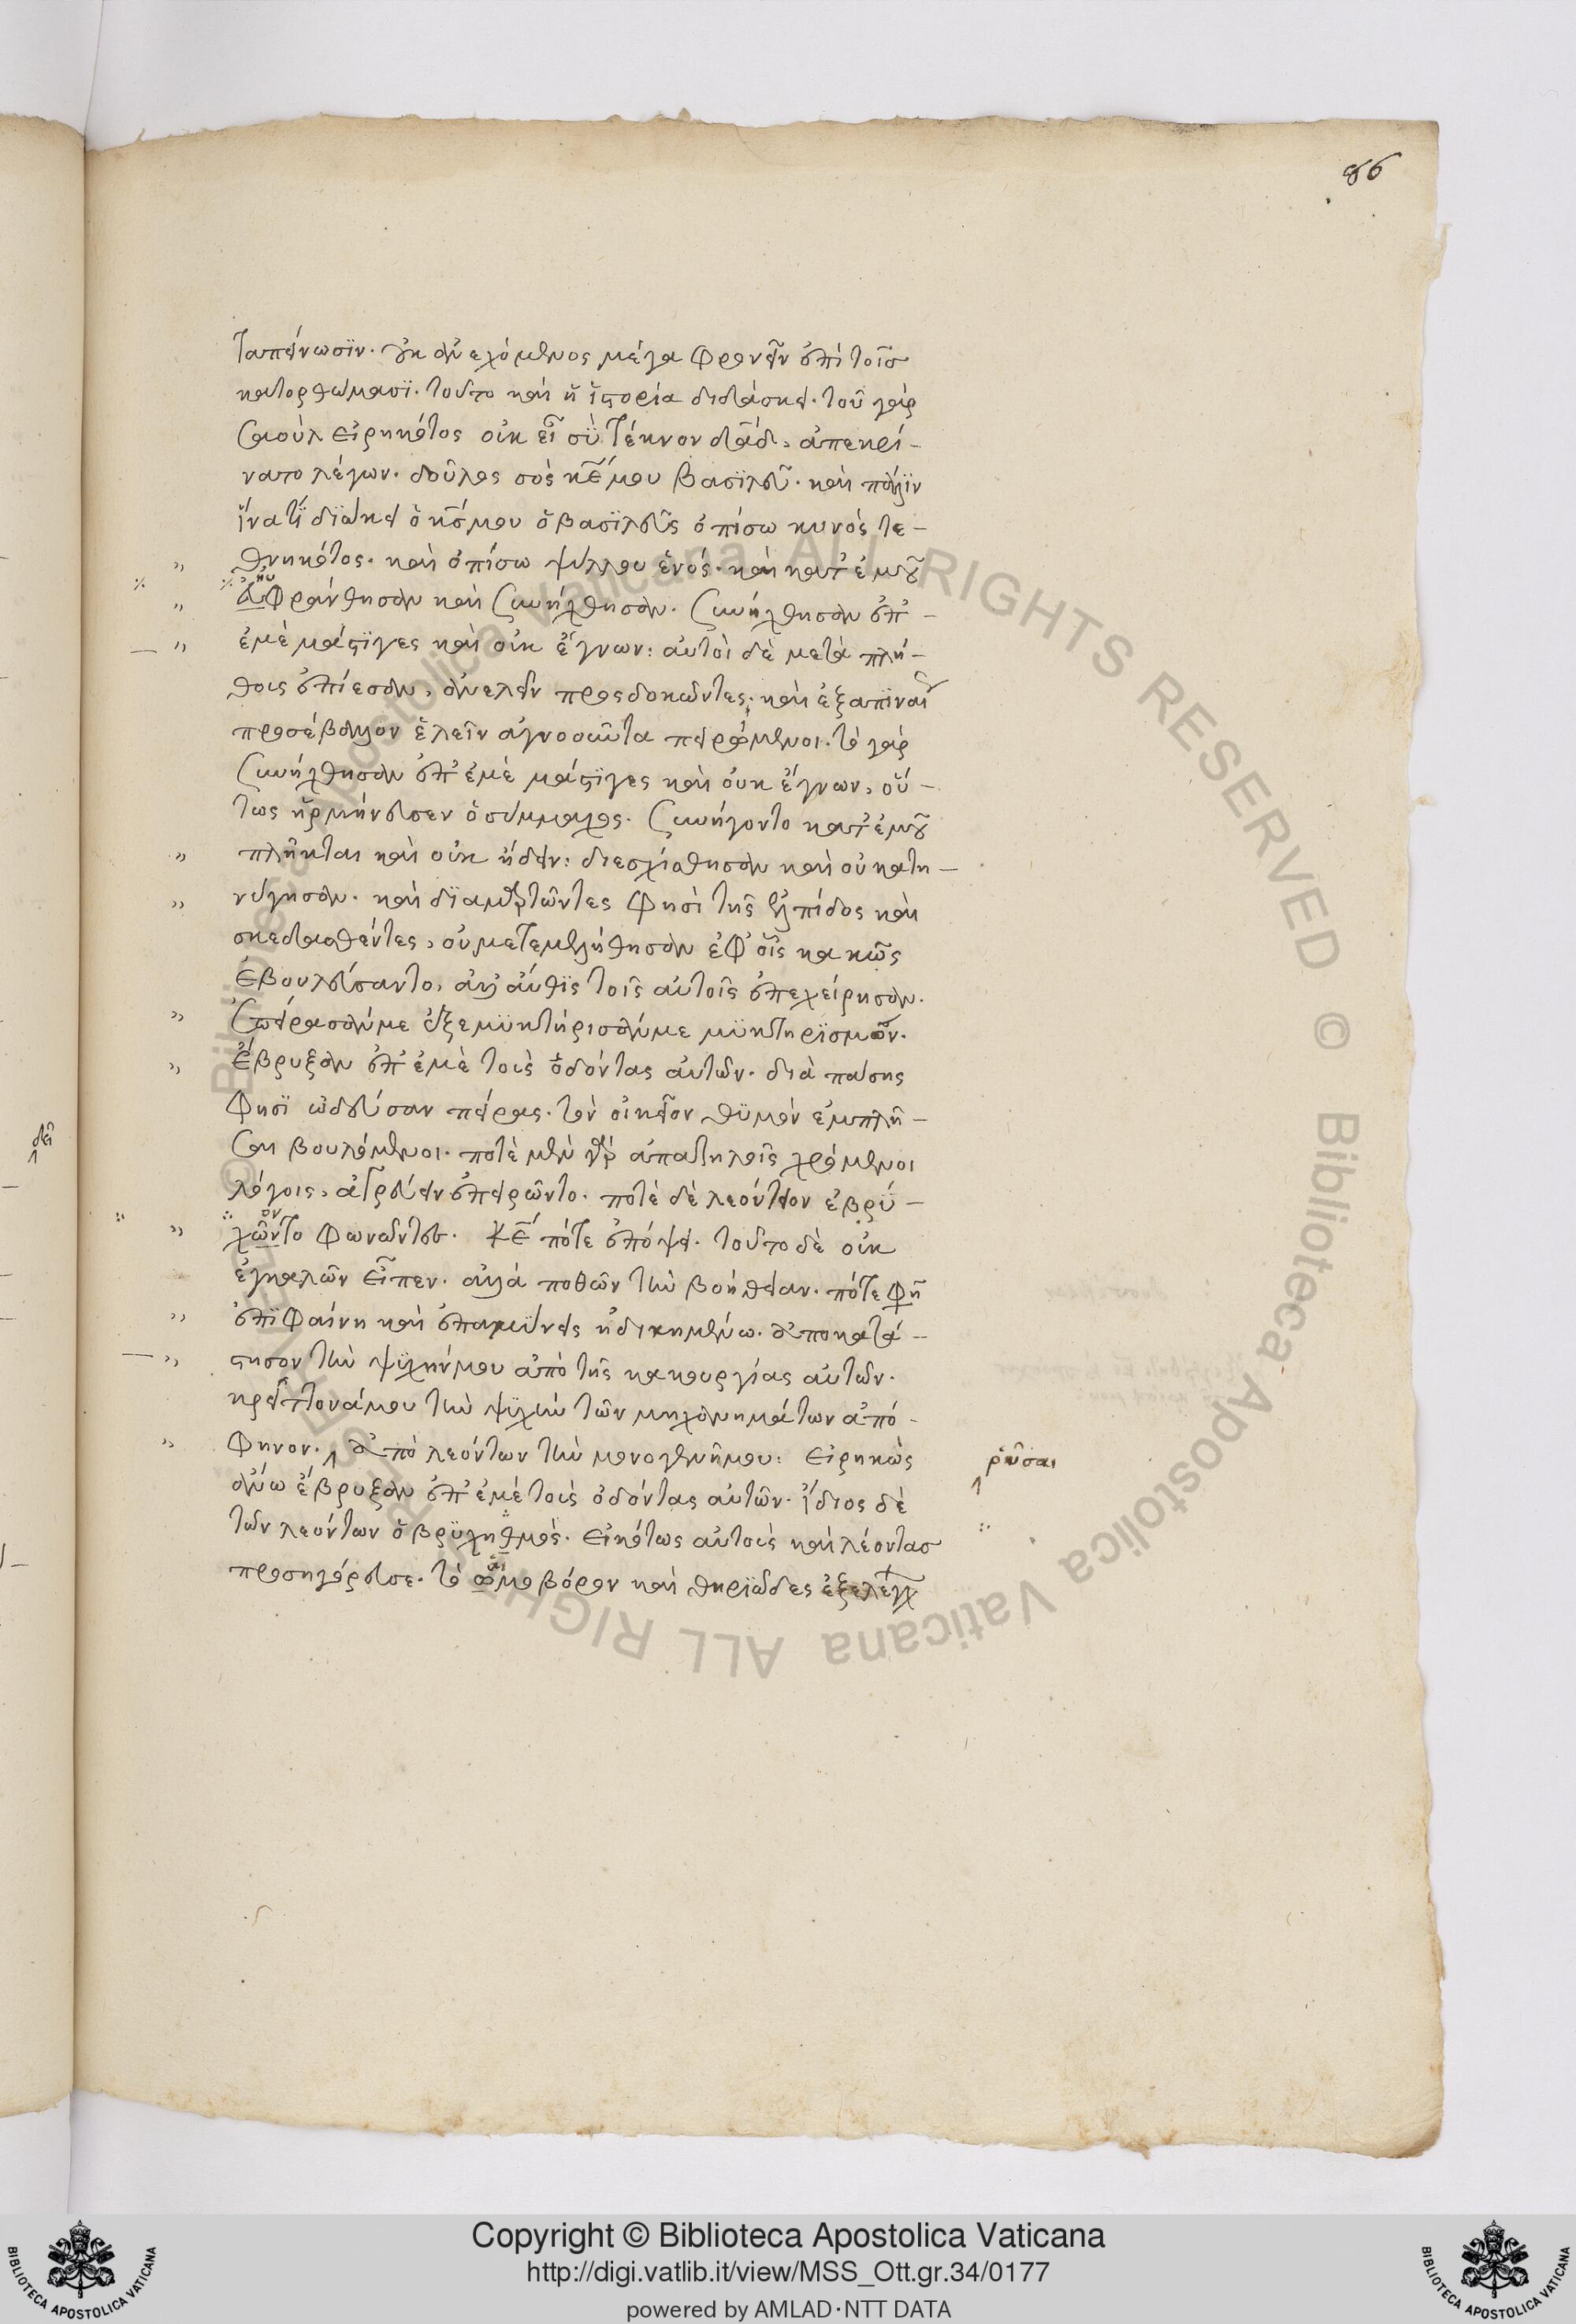 86
ταπείνωσϊν. οὐκ ἀνεχόμενος μέγα φρονεῖν ἐπὶ τοῖσ
κατορθώμασϊ. τοῦτο καὶ ἡ ἱστορία διδάσκει. τοῦ γὰρ
σαοὺλ εἰρηκότος οὐκ εἶ σὺ τέκνον δᾱδ, ἀπεκρί-
νατο λέγων. δοῦλος σὸς κ̄ε μου βασϊλεῦ. καὶ πάλϊν
ἵνα τί διώκει ὁ κ̄ς μου ὁ βασϊλεῦς ὀπίσω κυνός τε-
θνηκότος. καὶ ὀπίσω ψύλλου ἑνός. καὶ κατ' ἐμοῦ
εὐφράνθησαν καὶ συνήχθησαν. συνήχθησαν ἐπ' -
ἐμὲ μάστϊγες καὶ οὐκ ἔγνων: αὐτοὶ δὲ μετὰ πλή-
θους ἐπίεσαν, ἀνελεῖν προσδοκῶντες· καὶ ἐξαπιναί
προσέβαλλον ἑλεῖν ἀγνοοῦντα πειρώμενοι. τὸ γὰρ
συνήχθησαν ἐπ' ἐμὲ μάστϊγες καὶ οὐκ ἔγνων, οὕ-
τως ἡρμήνευσεν ὁ σύμμαχος. συνήγοντο κατ' ἐμοῦ
πλῆκται καὶ οὐκ ᾔδειν: διεσχίσθησαν καὶ οὐ κατη-
νύγησαν. καὶ δϊαμαρτῶντες φησὶ τῆς ἐλπίδος καὶ
σκεδασθέντες, οὐ μετεμελήθησαν ἐφ' οἷς κακῶς
ἐβουλεύσαντο, ἀλλ' αὖθϊς τοῖς αὐτοῖς ἐπεχείρησαν.
ἐπείρασάν με ἐξεμϋκτήρισάν με μϋκτηρϊσμόν.
ἔβρυξαν ἐπ' ἐμὲ τοὺς ὀδόντας αὐτῶν. διὰ πάσης
φησϊ ὥδευσαν πείρας. τὸν οἰκεῖον θϋμὸν ἐμπλῆ-
σαι βουλόμενοι. ποτὲ μὲν γὰρ ἀπατηλοῖς χρώμενοι
λόγοις, ἀγρεύειν ἐπειρῶντο. ποτὲ δὲ λεόντειον ἐβρϋ-
χῶντο φωνῶντες. κ̄ε πότε ἐπόψει. τοῦτο δὲ οὐκ
ἐγκαλῶν εἶπεν. ἀλλὰ ποθῶν τὴν βοήθειαν. πότε φη
ἐπϊφαίνη καὶ ἐπαμύνεις ἠδικημένω. ἀποκατά-
στησον τὴν ψϋχήν μου ἀπὸ τῆς κακουργίας αὐτῶν.
κρείττονά μου τὴν ψϋχὴν τῶν μηχανημάτων ἀπό-
φηνον. ἀπὸ λεόντων τὴν μονογενῆ μου: εἰρηκὼς
ἄνω ἔβρυξαν ἐπ' ἐμὲ τοὺς ὀδόντας αὐτῶν. ἴδιος δὲ
τῶν λεόντων ὁ βρϋχηθμός. εἰκότως αὐτοὺς καὶ λέοντασ
προσηγόρευσε. τὸ ὠμοβόρον καὶ θηρϊῶδες ἐξελέγχ
ῥῦσαι
Copyright © Biblioteca Apostolica Vaticana
http://digi.vatlib.it/view/MSS_Ott.gr.34/0177
powered by AMLAD·NTT DATA
BIBLIOTECA APOSTOLICA VATICANA
BIBLIOTECA APOSTOLICA VATICANA
© Biblioteca Apostolica Vaticana ALL RIGHTS RESERVED © Biblioteca Apostolica Vaticana ALL RIGHTS RESERVED